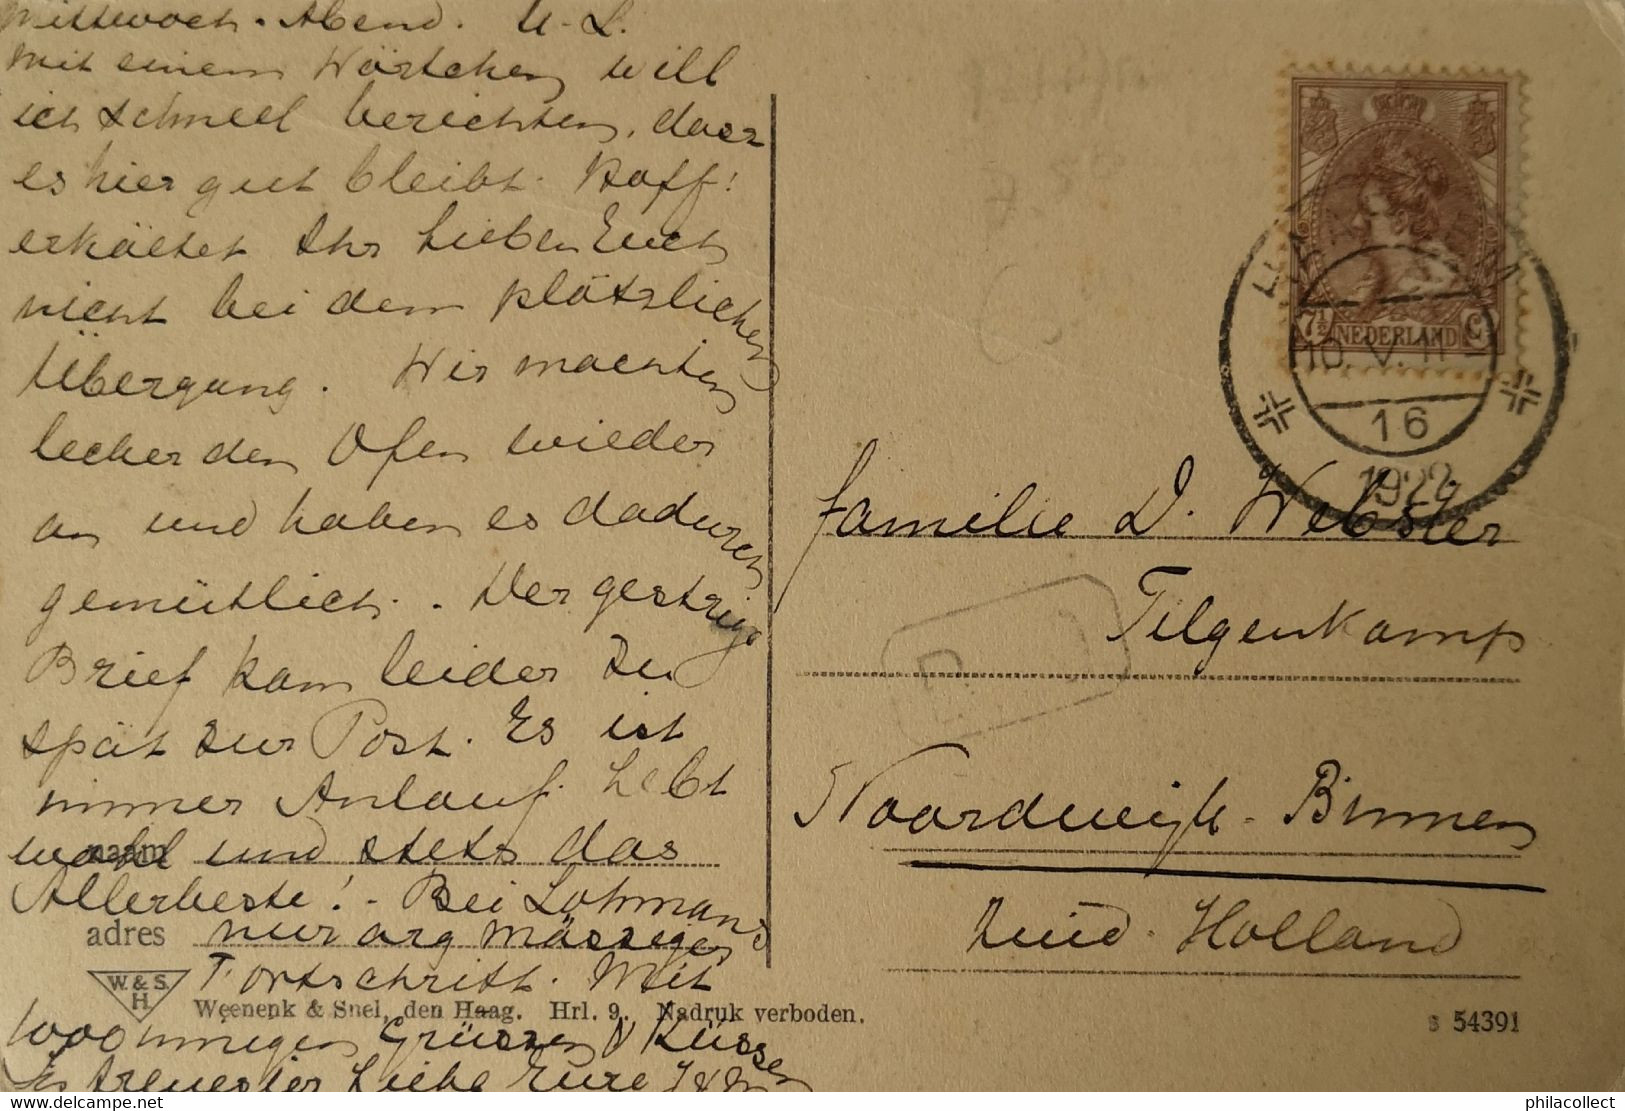 Mittwoch. Abend. U. L.
Mit einem Wörtchen will
ich schnell berichten, dass
es hier gut bleibt. Hoff!
erkältet Ihr Lieben Euch
nicht bei dem plötzlichen
Übergang. Wir machten
lecker den Ofen wieder
an und haben es dadurch
gemütlich. Der gestrige
Brief kam leider zu
spät zur Post. Es ist
immer Anlauf. Lebt
wohl und stets das
Allerbeste! - Bei Lohmans
nur arg mässigen
Fortschritt. Mit
innigen Grüssen & Küssen
In treuester Liebe Eure
naam
adres
W. & S.
H
Weenenk & Snel, den Haag. Hrl. 9. Nadruk verboden.
S 54391
7½ NEDERLAND C
10. V. 11
16
1922
Familie D. Webster
Tilgenkamp
Noordwijk-Binnen
Zuid-Holland
delcampe.net
philacollect